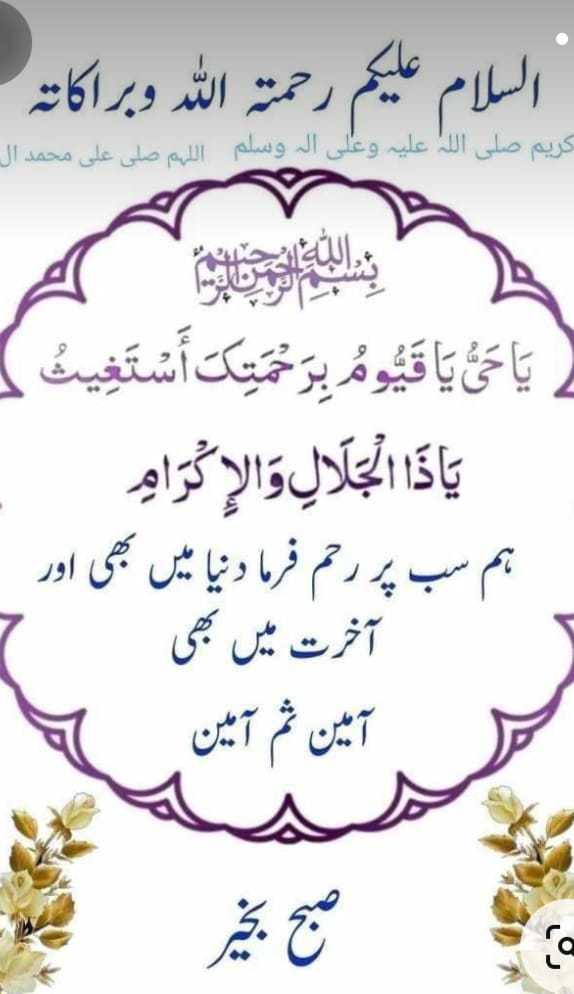 السلام علیکم رحمتہ اللہ وبراکاتہ
کریم صلی اللہ علیہ وعلی الہ وسلم اللہم صلی علی محمد ال
بِسْمِ اللَّهِ الرَّحْمَنِ الرَّحِيمِ
يَا حَيُّ يَا قَيُّومُ بِرَحْمَتِكَ أَسْتَغِيثُ
يَاذَا الْجَلَالِ وَالإِكْرَامِ
ہم سب پر رحم فرما دنیا میں بھی اور
آخرت میں بھی
آمین ثم آمین
صبح بخیر